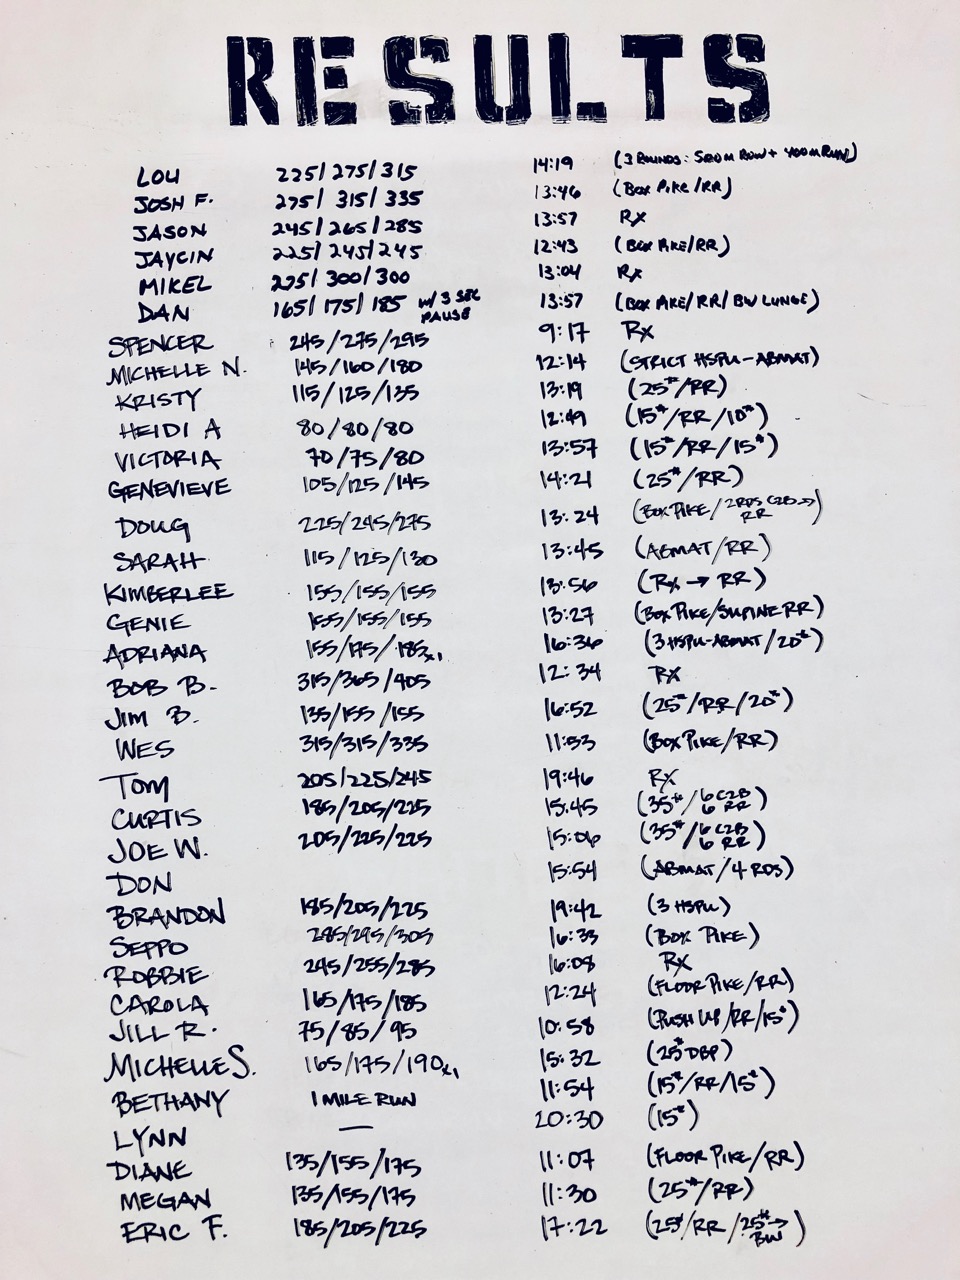 RESULTS
LOU 225/275/315 14:19 (3 ROUNDS: 500M ROW + 400M RUN)
JOSH F. 275/315/335 13:46 (BOX PIKE/RR)
JASON 245/265/285 13:57 Rx
JAYCIN 225/245/245 12:43 (BOX PIKE/RR)
MIKEL 275/300/300 13:04 Rx
DAN 165/175/185 W/ 3 SEC PAUSE 13:57 (BOX PIKE/RR/BW LUNGE)
SPENCER 245/275/295 9:17 Rx
MICHELLE N. 145/160/180 12:14 (STRICT HSPU-ABMAT)
KRISTY 115/125/135 13:19 (25#/RR)
HEIDI A 80/80/80 12:49 (15#/RR/10#)
VICTORIA 70/75/80 13:57 (15#/RR/15#)
GENEVIEVE 105/125/145 14:21 (25#/RR)
DOUG 225/245/275 13:24 (BOX PIKE/2RDS C2B→ RR)
SARAH 115/125/130 13:45 (ABMAT/RR)
KIMBERLEE 155/155/155 13:56 (Rx → RR)
GENIE 155/155/155 13:27 (BOX PIKE/SUPINE RR)
ADRIANA 155/175/185x1 16:36 (3 HSPU-ABMAT/20#)
BOB B. 315/365/405 12:34 Rx
JIM B. 135/155/155 16:52 (25#/RR/20#)
WES 315/315/335 11:53 (BOX PIKE/RR)
TOM 205/225/245 19:46 Rx
CURTIS 185/205/225 15:45 (35#/6 C2B 6 RR)
JOE W. 205/225/225 15:06 (35#/6 C2B 6 RR)
DON 15:54 (ABMAT/4 RDS)
BRANDON 185/205/225 19:42 (3 HSPU)
SEPPO 285/295/305 16:33 (BOX PIKE)
ROBBIE 245/255/285 16:08 Rx
CAROLA 165/175/185 12:24 (FLOOR PIKE/RR)
JILL R. 75/85/95 10:58 (PUSH UP/RR/15#)
MICHELLE S. 165/175/190x1 15:32 (25# DBP)
BETHANY 1 MILE RUN 11:54 (15#/RR/15#)
LYNN — 20:30 (15#)
DIANE 135/155/175 11:07 (FLOOR PIKE/RR)
MEGAN 135/155/175 11:30 (25#/RR)
ERIC F. 185/205/225 17:22 (25#/RR/25#→ BW)